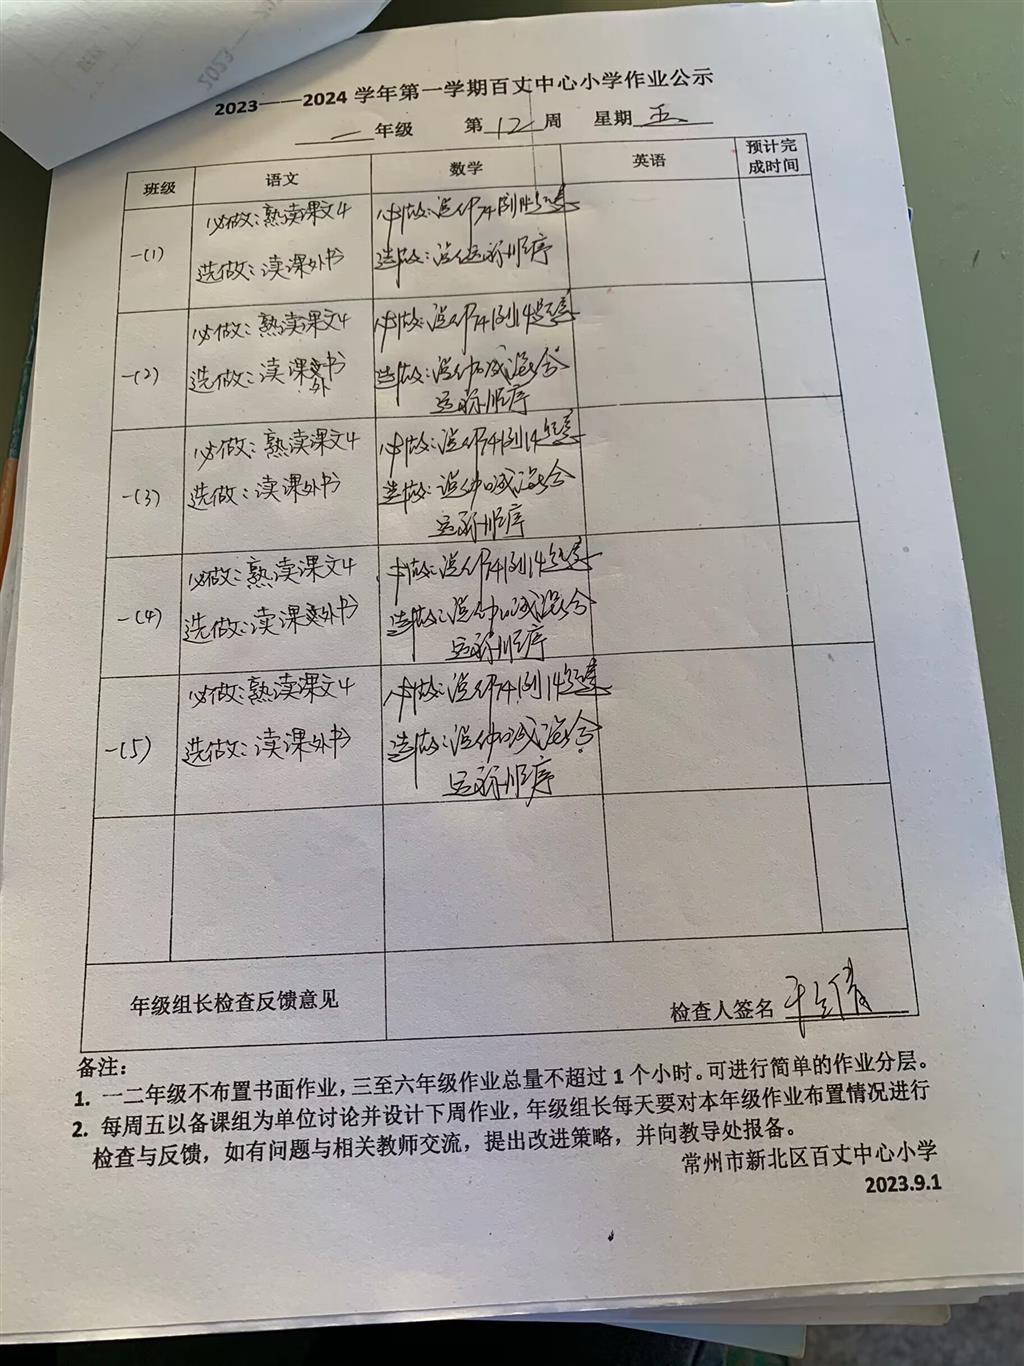 2023——2024 学年第一学期百丈中心小学作业公示
一 年级 第 12 周 星期 五
班级 语文 数学 英语 预计完成时间
一(1)
必做：熟读课文4
选做：读课外书
选做：说 运算顺序
一(2)
必做：熟读课文4
选做：读课外书
选做：说 加减混合
运算顺序
一(3)
必做：熟读课文4
选做：读课外书
选做：说 加减混合
运算顺序
一(4)
必做：熟读课文4
选做：读课外书
选做：说 加减混合
运算顺序
一(5)
必做：熟读课文4
选做：读课外书
选做：说 加减混合
运算顺序
年级组长检查反馈意见
检查人签名
备注：
1. 一二年级不布置书面作业，三至六年级作业总量不超过 1 个小时。可进行简单的作业分层。
2. 每周五以备课组为单位讨论并设计下周作业，年级组长每天要对本年级作业布置情况进行
检查与反馈，如有问题与相关教师交流，提出改进策略，并向教导处报备。
常州市新北区百丈中心小学
2023.9.1